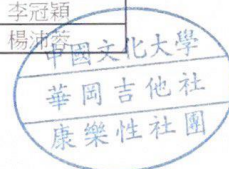 李冠穎
楊沛蓉
中國文化大學
華岡吉他社
康樂性社團